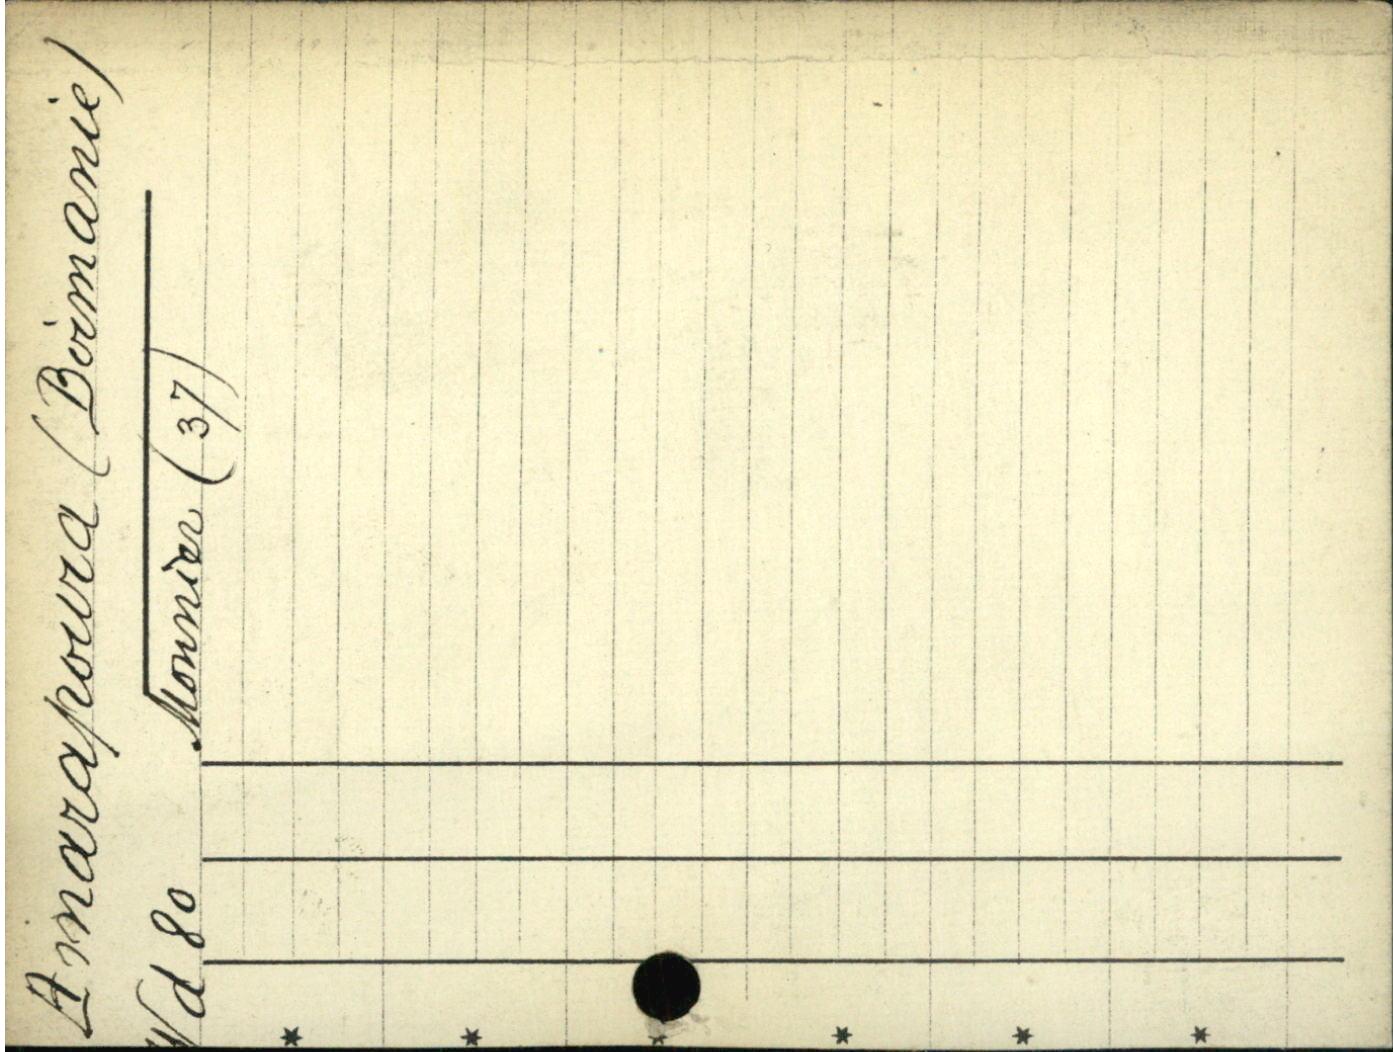 Amarapoura (Birmanie)
Wd 80 Monnier (37)